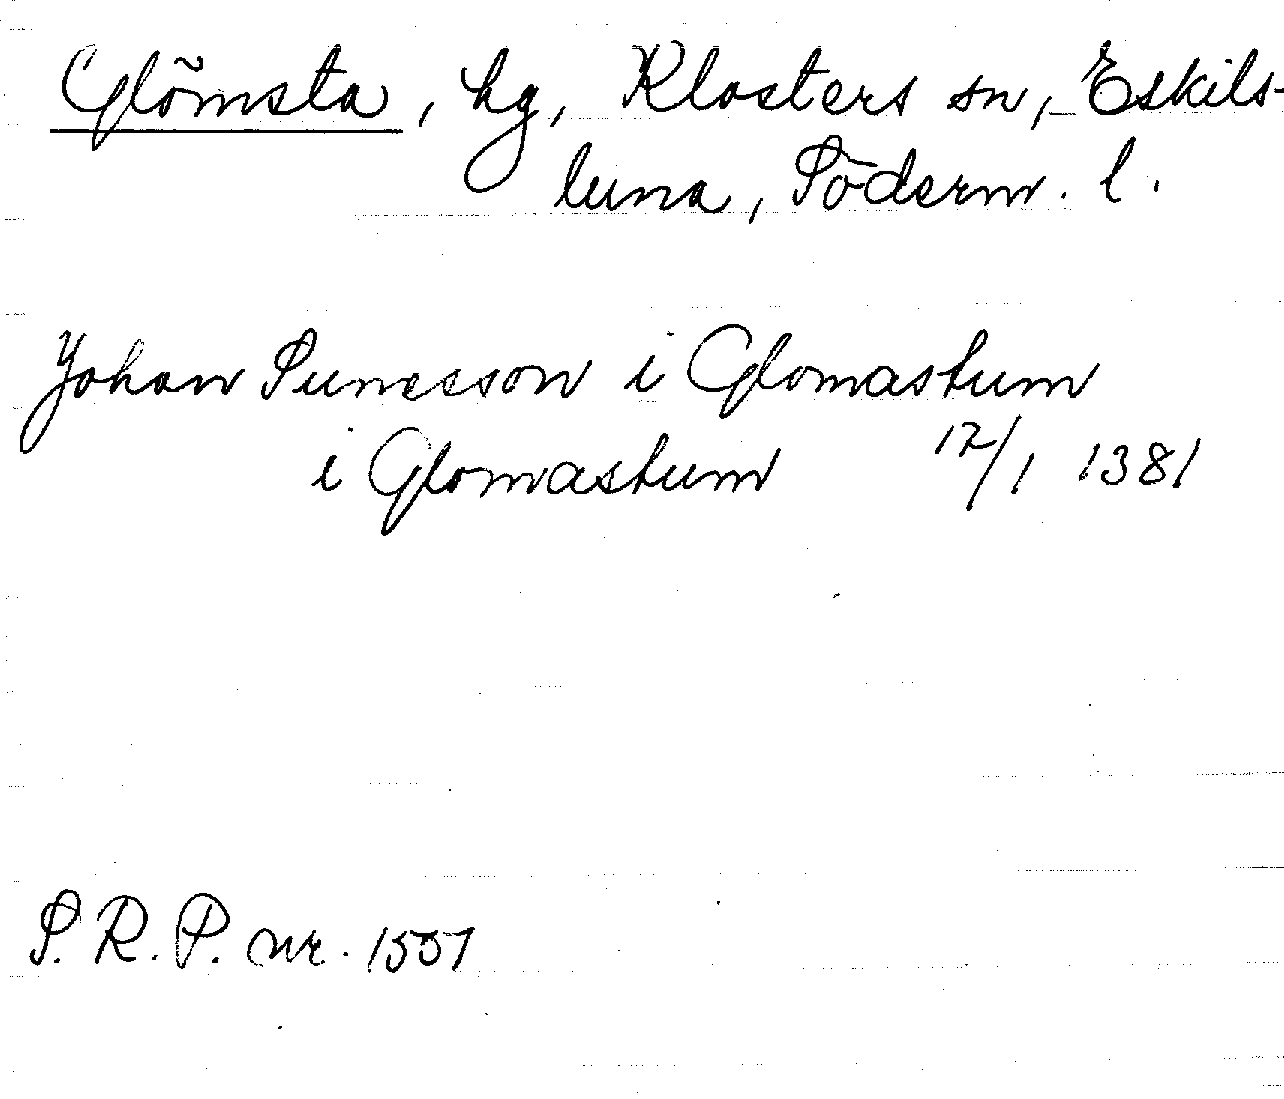 Glömsta, hg, Klosters sn, Eskils-
tuna, Söderm. l.
Johan Sunesson i Glomastum
i Glomastum 17/1 1381
S. R. P. nr. 1557